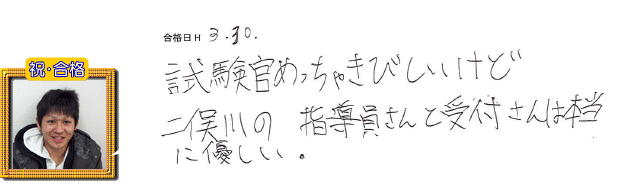 合格日H 3.30.
祝・合格
試験官めっちゃきびしいけど
二俣川の 指導員さんと受付さんは本当
に優しい。